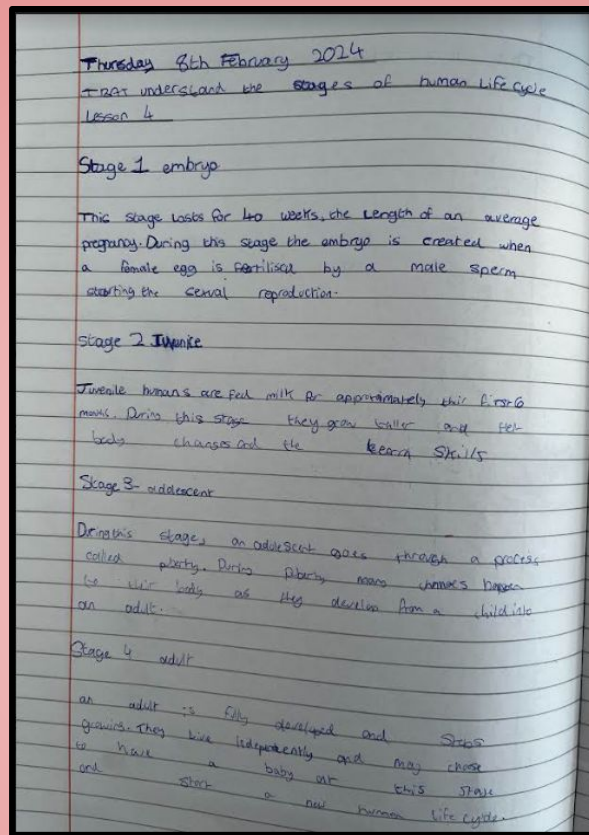 Thursday 8th February 2024
TBAT understand the stages of human Life cycle
Lesson 4
Stage 1 embryo
This stage lasts for 40 weeks, the length of an average
pregnancy. During this stage the embryo is created when
a female egg is fertilised by a male sperm
starting the reproduction.
Stage 2 Juvenile
Juvenile humans are fed milk for approximately first 6
During this stage they grow taller and
body changes and skills
Stage 3- addescent
During this stage, an adolescent goes through a process
called puberty. During puberty many changes happen
to their body as they develop from a child into
an adult.
Stage 4 adult
an adult is fully developed and stops
growing. They live independently and may choose
to have a baby at this stage
and start a new human life cycle.